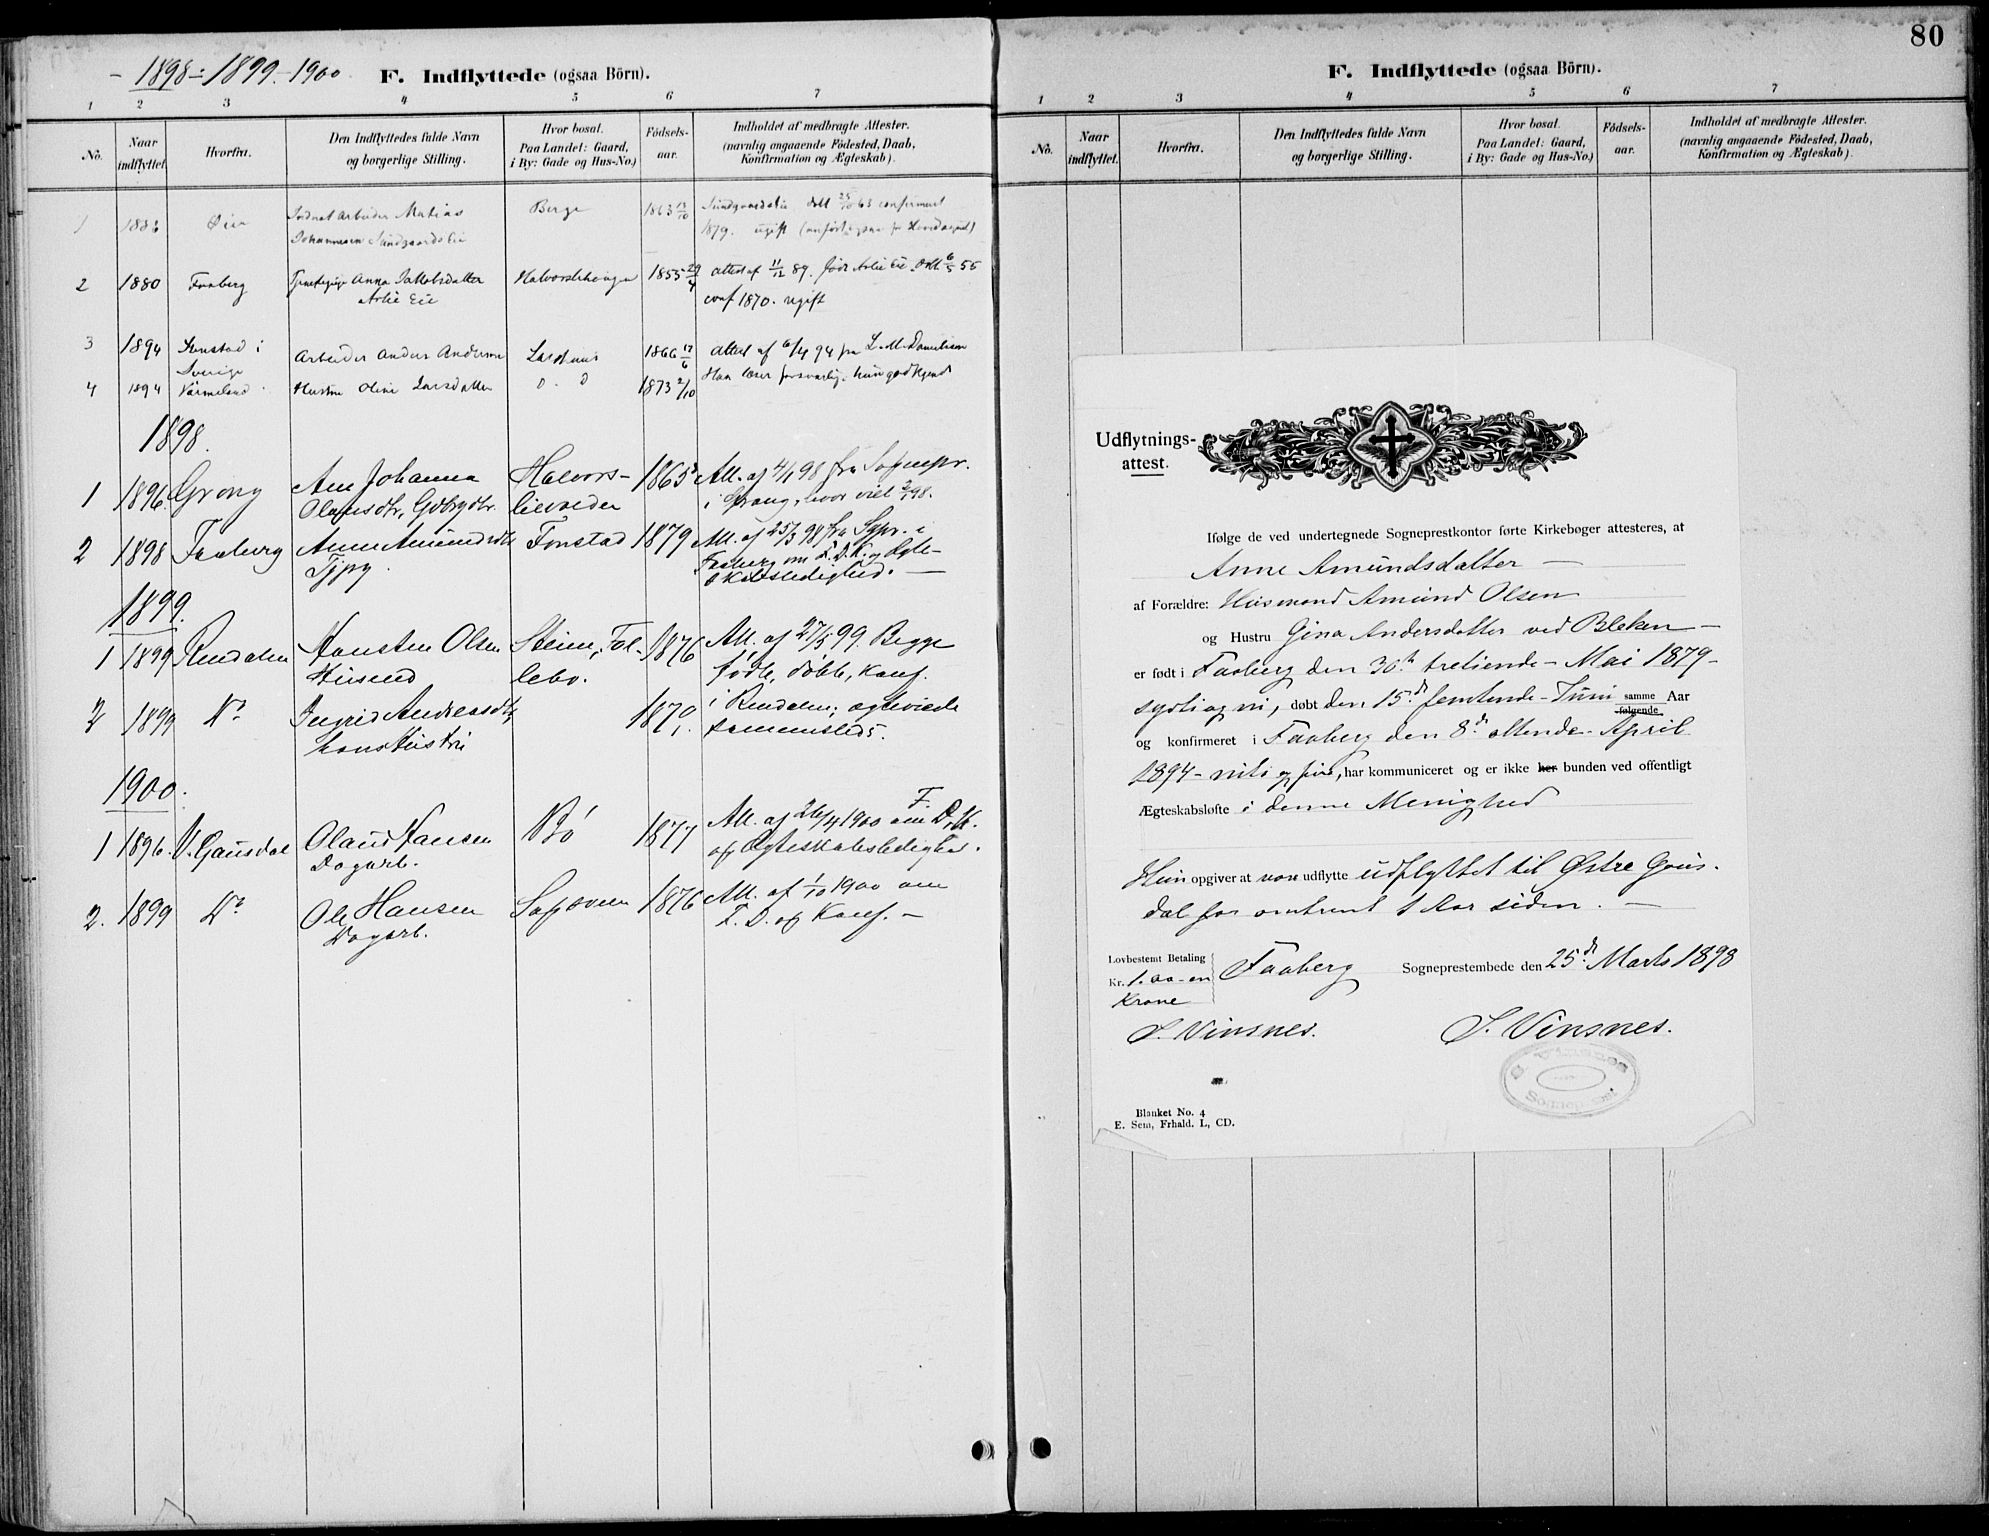 1898-1899-1900 F. Indflyttede (ogsaa Börn).
1 2 3 4 5 6 7
No. Naar indflyttet. Hvorfra. Den Indflyttedes fulde Navn og borgerlige Stilling. Hvor bosat. Paa Landet: Gaard, i By: Gade og Hus-No.) Födsels-aar. Indholdet af medbragte Attester. (navnlig angaaende Födested, Daab, Konfirmation og Ægteskab).
1 Øier Matias Berge 1863 13/10 confirmert
Johannesen Sundgaards Eie 1879. ugift
2 1880 Faaberg Anna Jakobsdatter 1855 29/4 attest af 11/12 89. født Eie Døbt 6/5 55
Eie conf 1870. ugift
3 1894 i Arbeider Anders Andersen 1866 17/6 attest af 6/4 94 fra
Sverige
4 1894 Värmeland Hustru Oline Larsdatter 1873 2/10 Han læser forsvarlig, hun godkjendt
1898.
1 1896 Grong Ane Johanna Halvors- 1865 Att. af 4/1 98 fra Sognepr.
Olausdtr, lieveien i Grong, hvor viet
2 1898 Faaberg Anne Amundsdt Fonstad 1879 Att. af 25/3 98 fra Sgpr. i
Tjpg. Faaberg om F. D. K. og Ægte-
skabsledighed. —
1899.
1 1899 Rendalen Hansten Olsen Steine, Fol- 1876 Att. af 27/5 99. Begge
lebo. födte, döbte, konf.
2 1899 Do Ingrid Andreasdtr 1879. i Rendalen; ogsaa viede
hans Hustru sammesteds.
1900.
1 1896. V. Gausdal Olaus Hansen Bö 1877 Att. af 26/4 1900 om F. D. K.
Dagarb. og Ægteskabsledighed.
2. 1899 Do Ole Hansen 1876 Att. af 1/10 1900 om
Dagarb. F. D. og Konf. —
80
F. Indflyttede (ogsaa Börn).
1 2 3 4 5 6 7
No. Naar indflyttet. Hvorfra. Den Indflyttedes fulde Navn og borgerlige Stilling. Hvor bosat. Paa Landet: Gaard, i By: Gade og Hus-No.) Födsels-aar. Indholdet af medbragte Attester. (navnlig angaaende Födested, Daab, Konfirmation og Ægteskab).
Udflytnings-
attest.
Ifølge de ved undertegnede Sogneprestkontor førte Kirkebøger attesteres, at
Anne Amundsdatter —
af Forældre: Husmand Amund Olsen
og Hustru Gina Andersdatter ved Bleken —
er født i Faaberg den 30te tretiende - Mai 1879 -
sytti og ni, døbt den 15de femtende - Juni samme følgende Aar
og konfirmeret i Faaberg den 8de ottende - April
1894 - nitti og fire, har kommuniceret og er ikke her bunden ved offentligt
Ægteskabsløfte i denne Menighed
Hun opgiver at være udflytte udflyttet til Østre Gaus-
dal for omtrent 1 Aar siden. —
Lovbestemt Betaling
Kr. 1.00 - en
Krone
Faaberg Sogneprestembede den 25de Marts 1898
S. Vinsnes. S. Vinsnes.
S. Vinsnes
Sogneprest
Blanket No. 4
E. Sem, Frhald. L, CD.